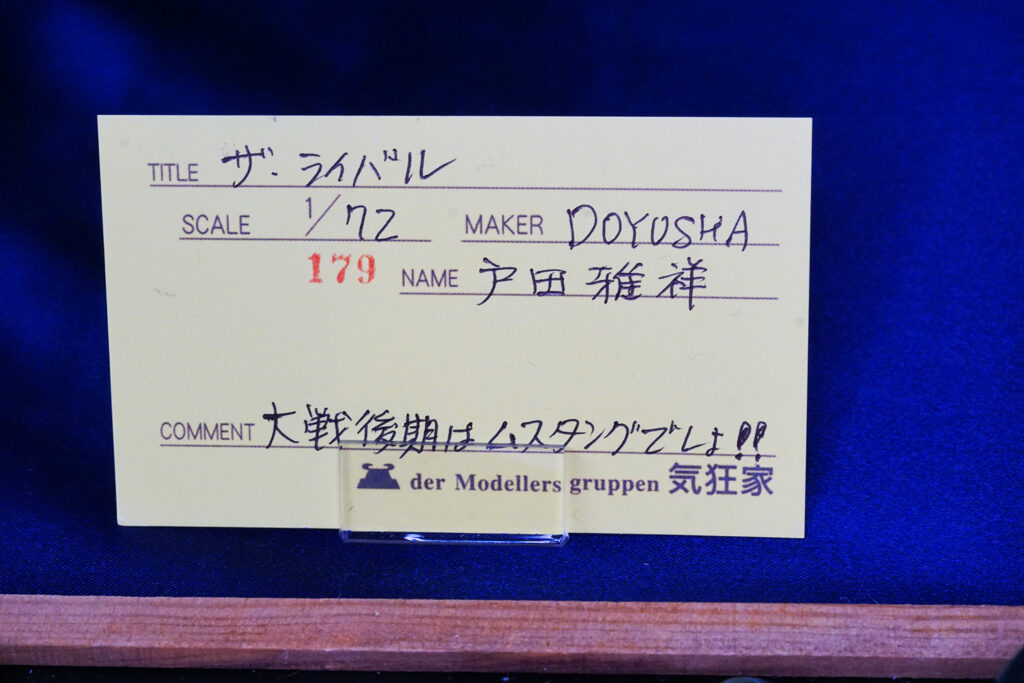 TITLE ザ・ライバル
SCALE 1/72 MAKER DOYUSHA
179 NAME 戸田雅祥
COMMENT 大戦後期はムスタングでしょ!!
der Modellers gruppen 気狂家